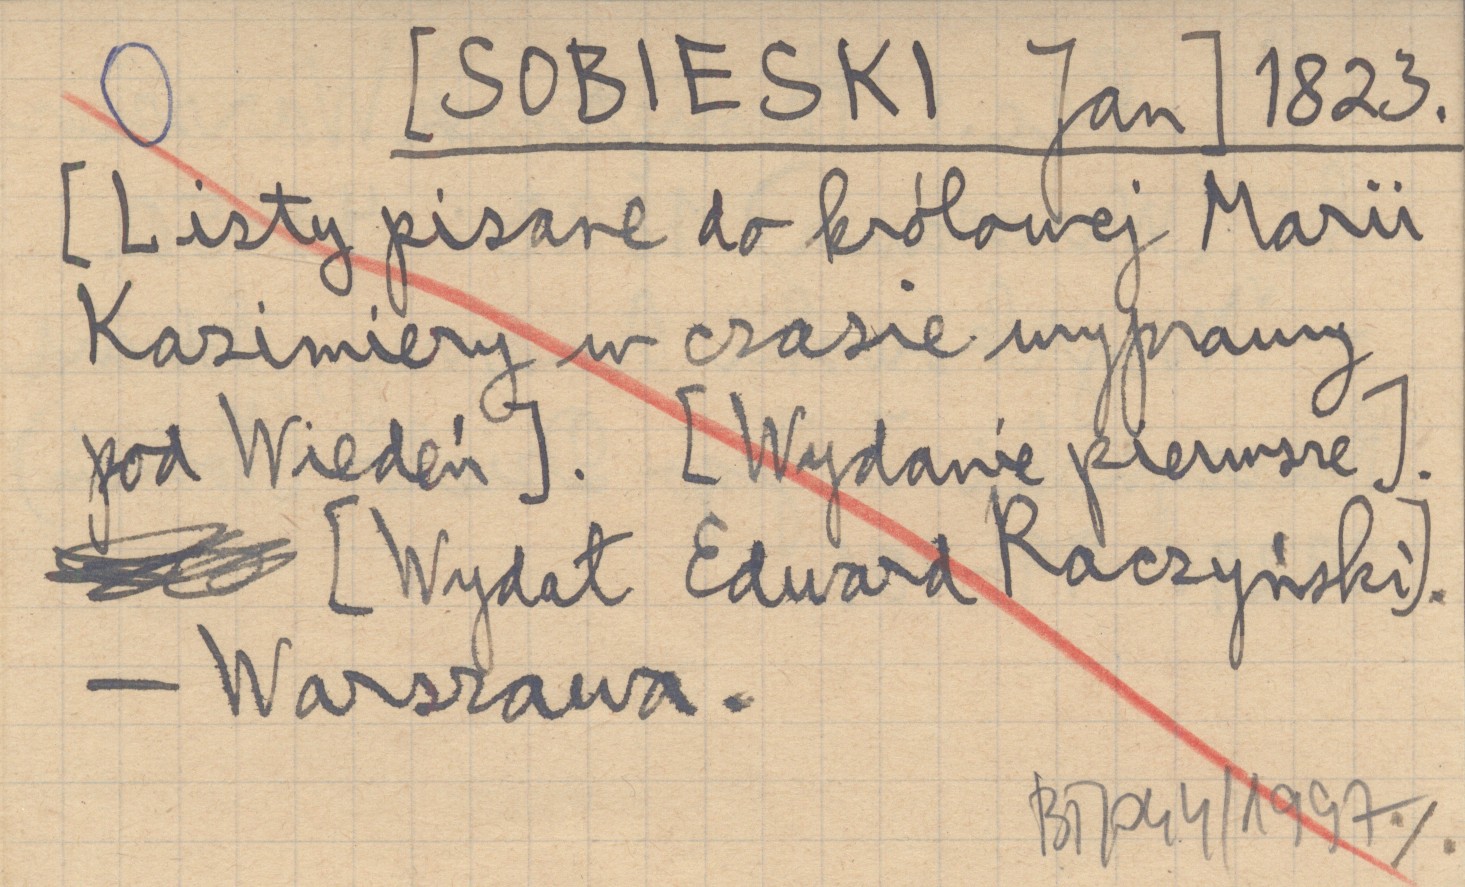 [SOBIESKI Jan] 1823.
[Listy pisane do królowej Marii
Kazimiery w czasie wyprawy
pod Wiedeń]. [Wydanie pierwsze].
[Wydał Edward Raczyński].
— Warszawa.
/1997.